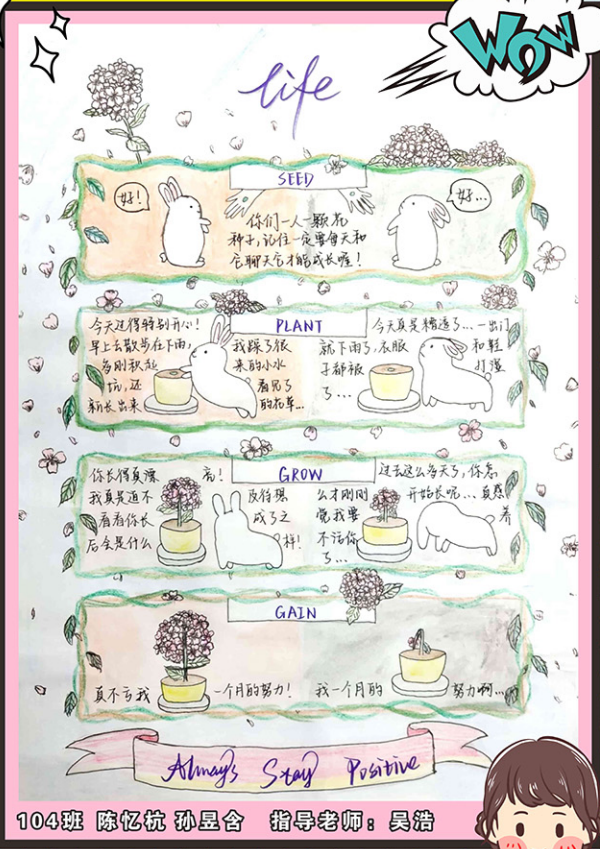 WOW
life
SEED
好!
好...
你们一人一颗花
种子,记住一定要每天和
它聊天它才能成长喔!
PLANT
今天过得特别开心!
早上去散步在下雨,
我踩了很
多刚积起
来的小水
坑,还
看见了
新长出来
的花草...
今天真是糟透了...一出门
就下雨了,衣服
和鞋
子都被
打湿
了...
GROW
你长得真漂
亮!
我真是迫不
及待想
看看你长
成了之
后会是什么
样!
过去这么多天了,你怎
么才刚刚
开始长呢...真感
觉我要
养
不活你
了...
GAIN
真不亏我
一个月的努力!
我一个月的
努力啊...
Always Stay Positive
104班 陈忆杭 孙昱含 指导老师：吴浩